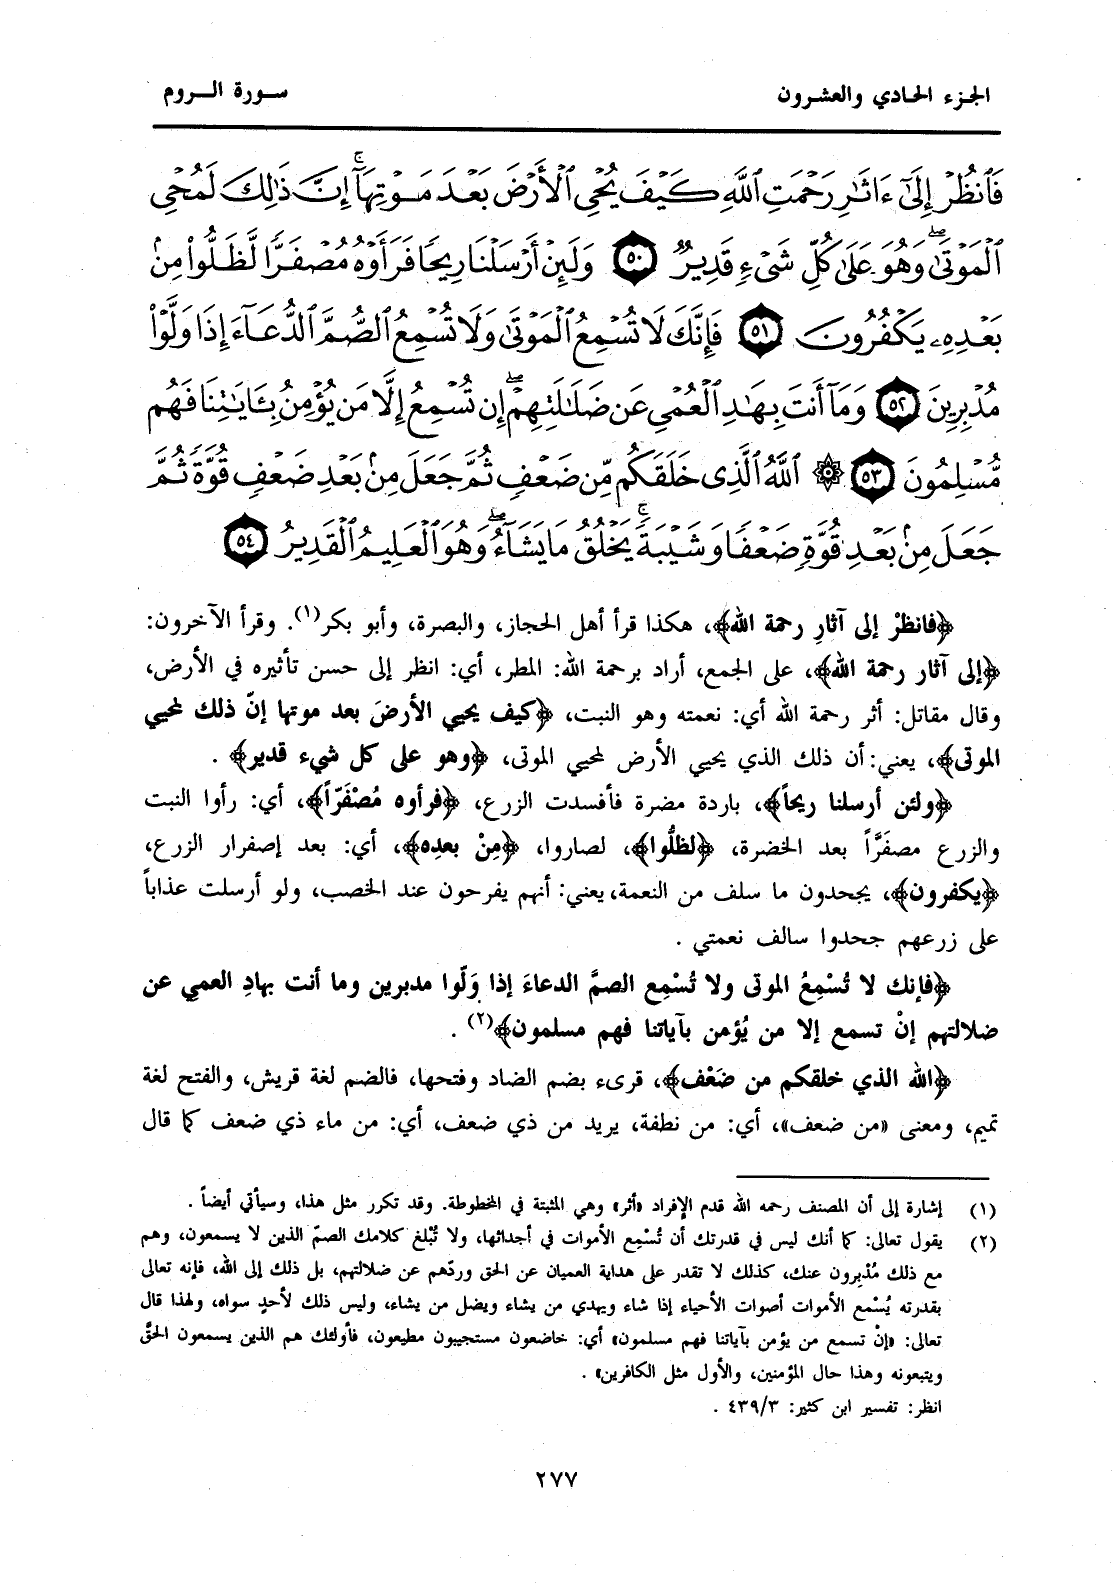 الجزء الحادي والعشرون
سورة الروم
فَٱنظُرۡ إِلَىٰٓ ءَاثَٰرِ رَحۡمَتِ ٱللَّهِ كَيۡفَ يُحۡيِ ٱلۡأَرۡضَ بَعۡدَ مَوۡتِهَآۚ إِنَّ ذَٰلِكَ لَمُحۡيِ
ٱلۡمَوۡتَىٰۖ وَهُوَ عَلَىٰ كُلِّ شَيۡءٖ قَدِيرٞ ٥٠ وَلَئِنۡ أَرۡسَلۡنَا رِيحٗا فَرَأَوۡهُ مُصۡفَرّٗا لَّظَلُّواْ مِنۢ
بَعۡدِهِۦ يَكۡفُرُونَ ٥١ فَإِنَّكَ لَا تُسۡمِعُ ٱلۡمَوۡتَىٰ وَلَا تُسۡمِعُ ٱلصُّمَّ ٱلدُّعَآءَ إِذَا وَلَّوۡاْ
مُدۡبِرِينَ ٥٢ وَمَآ أَنتَ بِهَٰدِ ٱلۡعُمۡيِ عَن ضَلَٰلَتِهِمۡۖ إِن تُسۡمِعُ إِلَّا مَن يُؤۡمِنُ بِـَٔايَٰتِنَا فَهُم
مُّسۡلِمُونَ ٥٣ ۞ ٱللَّهُ ٱلَّذِي خَلَقَكُم مِّن ضَعۡفٖ ثُمَّ جَعَلَ مِنۢ بَعۡدِ ضَعۡفٖ قُوَّةٗ ثُمَّ
جَعَلَ مِنۢ بَعۡدِ قُوَّةٖ ضَعۡفٗا وَشَيۡبَةٗۚ يَخۡلُقُ مَا يَشَآءُۖ وَهُوَ ٱلۡعَلِيمُ ٱلۡقَدِيرُ ٥٤
﴿فانظرْ إلى آثارِ رحمة الله﴾، هكذا قرأ أهل الحجاز، والبصرة، وأبو بكر(١). وقرأ الآخرون:
﴿إلى آثار رحمة الله﴾، على الجمع، أراد برحمة الله: المطر، أي: انظر إلى حسن تأثيره في الأرض،
وقال مقاتل: أثر رحمة الله أي: نعمته وهو النبت، ﴿كيف يحيي الأرضَ بعد موتها إنّ ذلك لمحيي
الموتى﴾، يعني: أن ذلك الذي يحيي الأرض لمحيي الموتى، ﴿وهو على كل شيء قدير﴾ .
﴿ولئن أرسلنا ريحاً﴾، باردة مضرة فأفسدت الزرع، ﴿فرأوه مُصْفَرّاً﴾، أي: رأوا النبت
والزرع مصفَرَّاً بعد الخضرة، ﴿لظلُّوا﴾، لصاروا، ﴿مِنْ بعدِه﴾، أي: بعد إصفرار الزرع،
﴿يكفرون﴾، يجحدون ما سلف من النعمة، يعني: أنهم يفرحون عند الخصب، ولو أرسلت عذاباً
على زرعهم جحدوا سالف نعمتي .
﴿فإنك لا تُسْمِعُ الموتى ولا تُسْمِع الصمَّ الدعاءَ إذا وَلّوا مدبرين وما أنت بهادِ العمي عن
ضلالتهم إنْ تسمع إلا من يُؤمن بآياتنا فهم مسلمون﴾(٢) .
﴿الله الذي خلقكم من ضَعْف﴾، قرىء بضم الضاد وفتحها، فالضم لغة قريش، والفتح لغة
تميم، ومعنى «من ضعف»، أي: من نطفة، يريد من ذي ضعف، أي: من ماء ذي ضعف كما قال
(١) إشارة إلى أن المصنف رحمه الله قدم الإفراد «أثر» وهي المثبتة في المخطوطة. وقد تكرر مثل هذا، وسيأتي أيضاً .
(٢) يقول تعالى: كما أنك ليس في قدرتك أن تُسْمِع الأموات في أجداثها، ولا تُبْلغ كلامك الصمّ الذين لا يسمعون، وهم
مع ذلك مُدْبِرون عنك، كذلك لا تقدر على هداية العميان عن الحق وردّهم عن ضلالتهم، بل ذلك إلى الله، فإنه تعالى
بقدرته يُسْمع الأموات أصوات الأحياء إذا شاء ويهدي من يشاء ويضل من يشاء، وليس ذلك لأحدٍ سواه، ولهذا قال
تعالى: «إنْ تسمع من يؤمن بآياتنا فهم مسلمون» أي: خاضعون مستجيبون مطيعون، فأولئك هم الذين يسمعون الحقَّ
ويتبعونه وهذا حال المؤمنين، والأول مثل الكافرين» .
انظر: تفسير ابن كثير: ٤٣٩/٣ .
٢٧٧